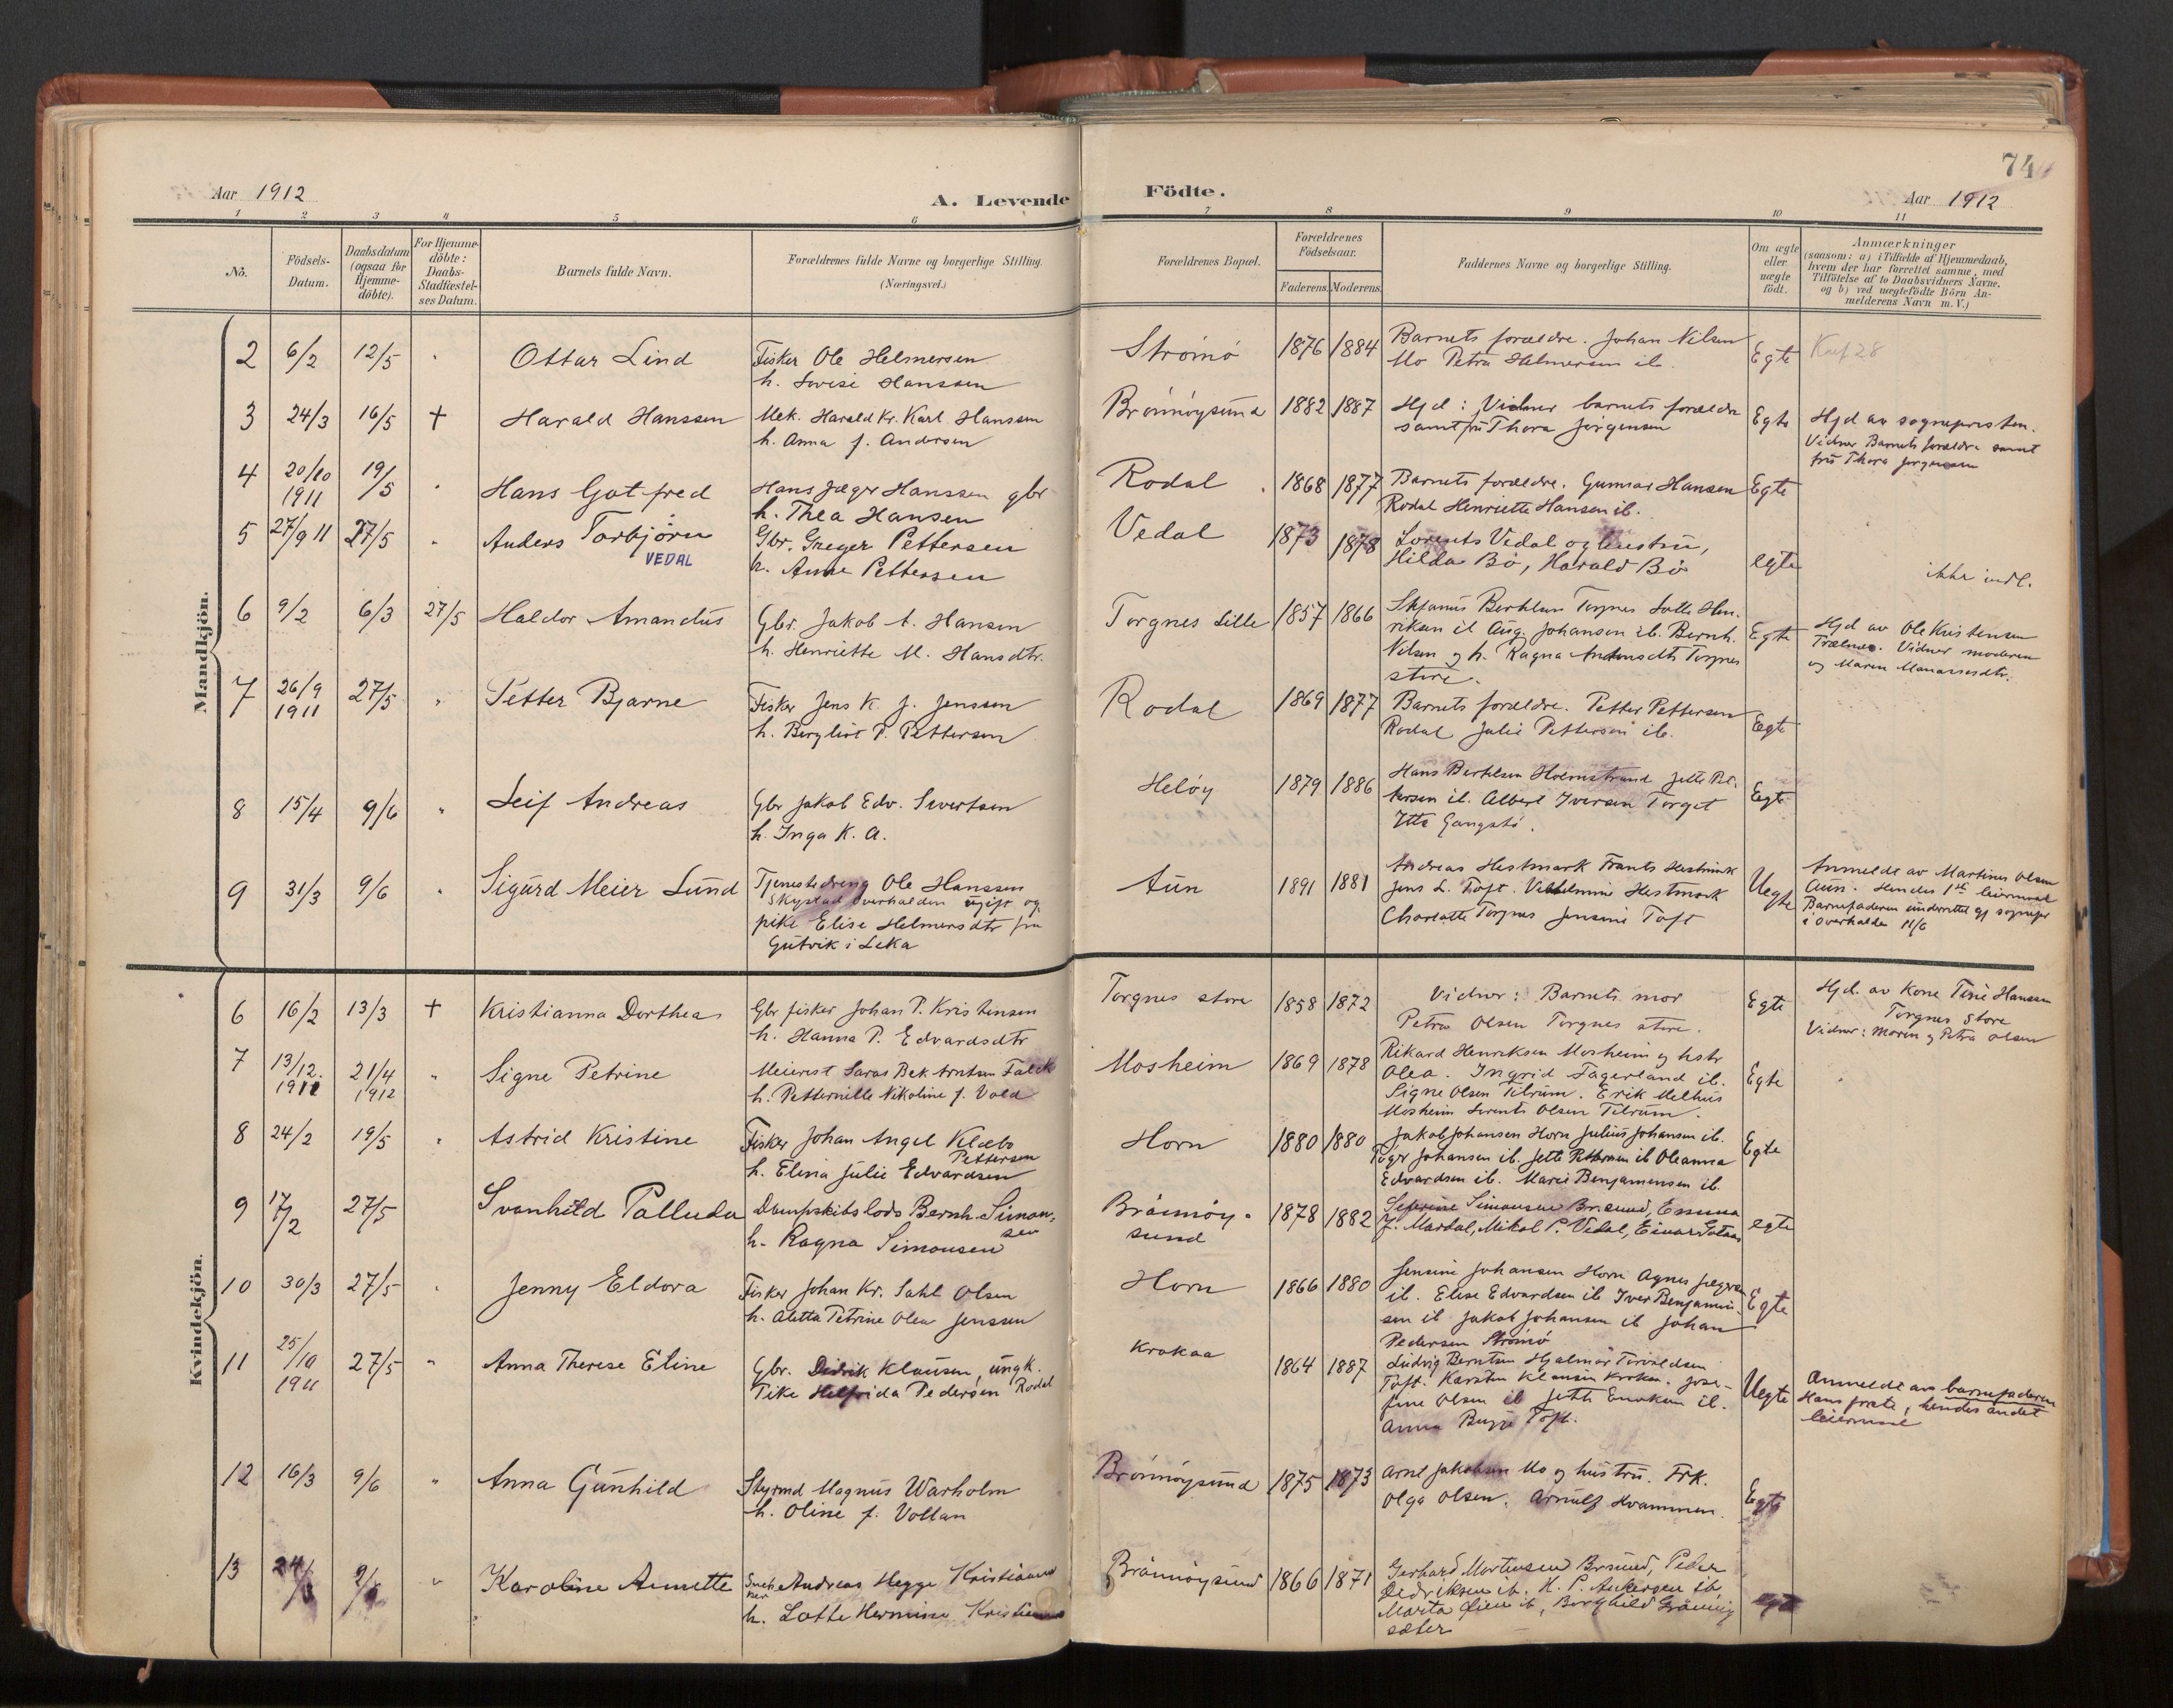 74
Aar 1912
A. Levende Födte.
Aar 1912
1 2 3 4 5 6 7 8 9 10 11
No.
Födsels-Datum.
Daabsdatum (ogsaa for Hjemme-döbte).
For Hjemme-döbte: Daabs-Stadfæstel-ses Datum.
Barnets fulde Navn.
Forældrenes fulde Navne og borgerlige Stilling.
(Næringsvei.)
Forældrenes Bopæl.
Forældrenes Födselsaar.
Faderens. Moderens.
Faddernes Navne og borgerlige Stilling.
Om ægte eller uægte födt.
Anmærkninger
(saasom: a) i Tilfælde af Hjemmedaab,
hvem der har forrettet samme, med
Tilföielse af to Daabsvidners Navne,
og b) ved uægtefödte Börn An-
melderens Navn m. V.)
Mandkjön.
2 6/2 12/5 " Ottar Lind Fisker Ole Helmersen
h. Lovise Hanssen
Strømø 1876 1884 Barnets forældre. Johan Nilsen
Mo Petra Helmersen ib. Egte
3 24/3 16/5 + Harald Hanssen Mek. Harald Kr. Karl Hanssen
h. Anna f. Andersen
Brønnøysund 1882 1887 Hjd: Vidner barnets forældre
samt fru Thora Jørgensen Egte
Hjd av sognepresten.
Vidner Barnets forældre samt
fru Thora Jørgensen
4 20/10 1911 19/5 " Hans Gotfred Hans Jæger Hanssen gbr
h. Thea Hansen
Rodal 1868 1877 Barnets forældre. Gunnar Hansen
Rodal Henriette Hansen ib. Egte
5 27/9 11 27/5 " Anders Torbjørn
VEDAL
Gbr. Greger Pettersen
h. Anne Pettersen
Vedal 1873 1878 Lorents Vedal og hustru,
Hilda Bø, Harald Bø egte
ikke indl.
6 9/2 6/3 27/5 Haldor Amandus Gbr. Jakob A. Hansen
h. Henriette M. Hansdtr.
Torgnes Lille 1857 1866 Berntsen Torgnes Lotte Hen-
riksen ib Aug. Johansen ib. Bernh.
Nilsen og h. Ragna Torgnes
store. Egte
Hjd av Ole Kristensen
Trælnes. Vidner moderen
og Maren Manassesdtr.
7 26/9 1911 27/5 " Petter Bjarne Fisker Jens K. J. Jenssen
h. Bergliot P. Pettersen
Rodal 1869 1877 Barnets forældre. Petter Pettersen
Rodal Julie Pettersen ib. Egte
8 15/4 9/6 " Leif Andreas Gbr Jakob Edv. Sivertsen
h. Inga K. A.
Heløy 1879 1886 Hans Bertelsen Holmstrand Jette Pet-
tersen ib. Albert Iversen Torget
Egte
9 31/3 9/6 " Sigurd Meier Lund Tjenestedreng Ole Hanssen
Skystad Overhalden ugift og
pike Elise Helmersdtr fra
Gutvik i Leka
Aun 1891 1881 Andreas Hestmark Frants Hestmark
Jens L. Toft. Vilhelmine Hestmark
Charlotte Torgnes Jensine Toft Uegte
Anmeldt av Martinus Olsen
Aun. Hendes 1ste leiermaal
Barnefaderen underrettet gj sognepr
i Overhalden 11/6
Kvindekjön.
6 16/2 13/3 + Kristianna Dorthea Gbr fisker Johan P. Kristensen
h. Hanna P. Edvardsdtr
Torgnes store 1858 1872 Vidner: Barnets mor
Petra Olsen Torgnes store. Egte
Hjd. av Kone Tine Hanssen
Torgnes Store
Vidner: moren og Petra Olsen
7 13/12. 1911 21/4 1912 " Signe Petrine Meierist Laras Bek Arntsen Falck
h. Petternille Nikoline f. Vold
Mosheim 1869 1878 Rikard Henriksen Mosheim og hstr
Olea. Ingrid Fagerland ib.
Signe Olsen Tilrum. Erik Melhus
Mosheim Lorents Olsen Tilrum. Egte
8 24/2 19/5 " Astrid Kristine Fisker Johan Angel Klæbo
Pettersen
h. Elina Julie Edvardsen
Horn 1880 1880 Jakob Johansen Horn Julius Johansen ib.
Johansen ib. Jette Pettersen ib Oleanna
Edvardsen ib. Marie Benjaminsen ib. Egte
9 17/2 27/5 Svanhild Palluda Dampskibslods Bernh. Simon-
sen
h. Ragna Simonsen
Brønnøy-
sund 1878 1882 Severine Simonsen Br.sund, Emma
J. Mardal, Mikal P. Vedal, Einar egte
10 30/3 27/5 " Jenny Eldora Fisker Johan Kr. Dahl Olsen
h. Aletta Petrine Olea Jenssen
Horn 1866 1880 Jensine Johansen Horn Agnes Jægersen
ib. Elise Edvardsen ib Iver Benjamin-
sen ib Jakob Johansen ib Johan
Pedersen Strømø Egte
11 25/10 1911 27/5 " Anna Therese Eline Gbr. Didrik Klausen, ungk.
Pike Helfrida Pedersen Rodal
Krokaa 1864 1887 Ludvig Berntsen Hjalmar Torvaldsen
Toft. Karsten Klausen Krokaa. Jose-
fine Olsen ib Jette Enoksen ib.
Anna Bugge Toft. Uegte
Anmeldt av barnefaderen
Hans første, hendes andet
leiermaal
12 16/3 9/6 " Anna Gunhild Styrmd Magnus Warholm
h. Oline f. Vollan
Brønnøysund 1875 1873 Arnt Jakobsen Mo og hustru. Frk.
Olga Olsen. Arnulf Kvammen. Egte
13 " Karoline Annette Andreas Hegge Kristiansen
h. Lotte Hermine Kristiansen
Brønnøysund 1866 1871 Gerhard Mortensen Br.sund, Peder
Dedriksen ib. K. P. Ankersen ib,
Marta ib, Borghild Grønnig-
sæter egte